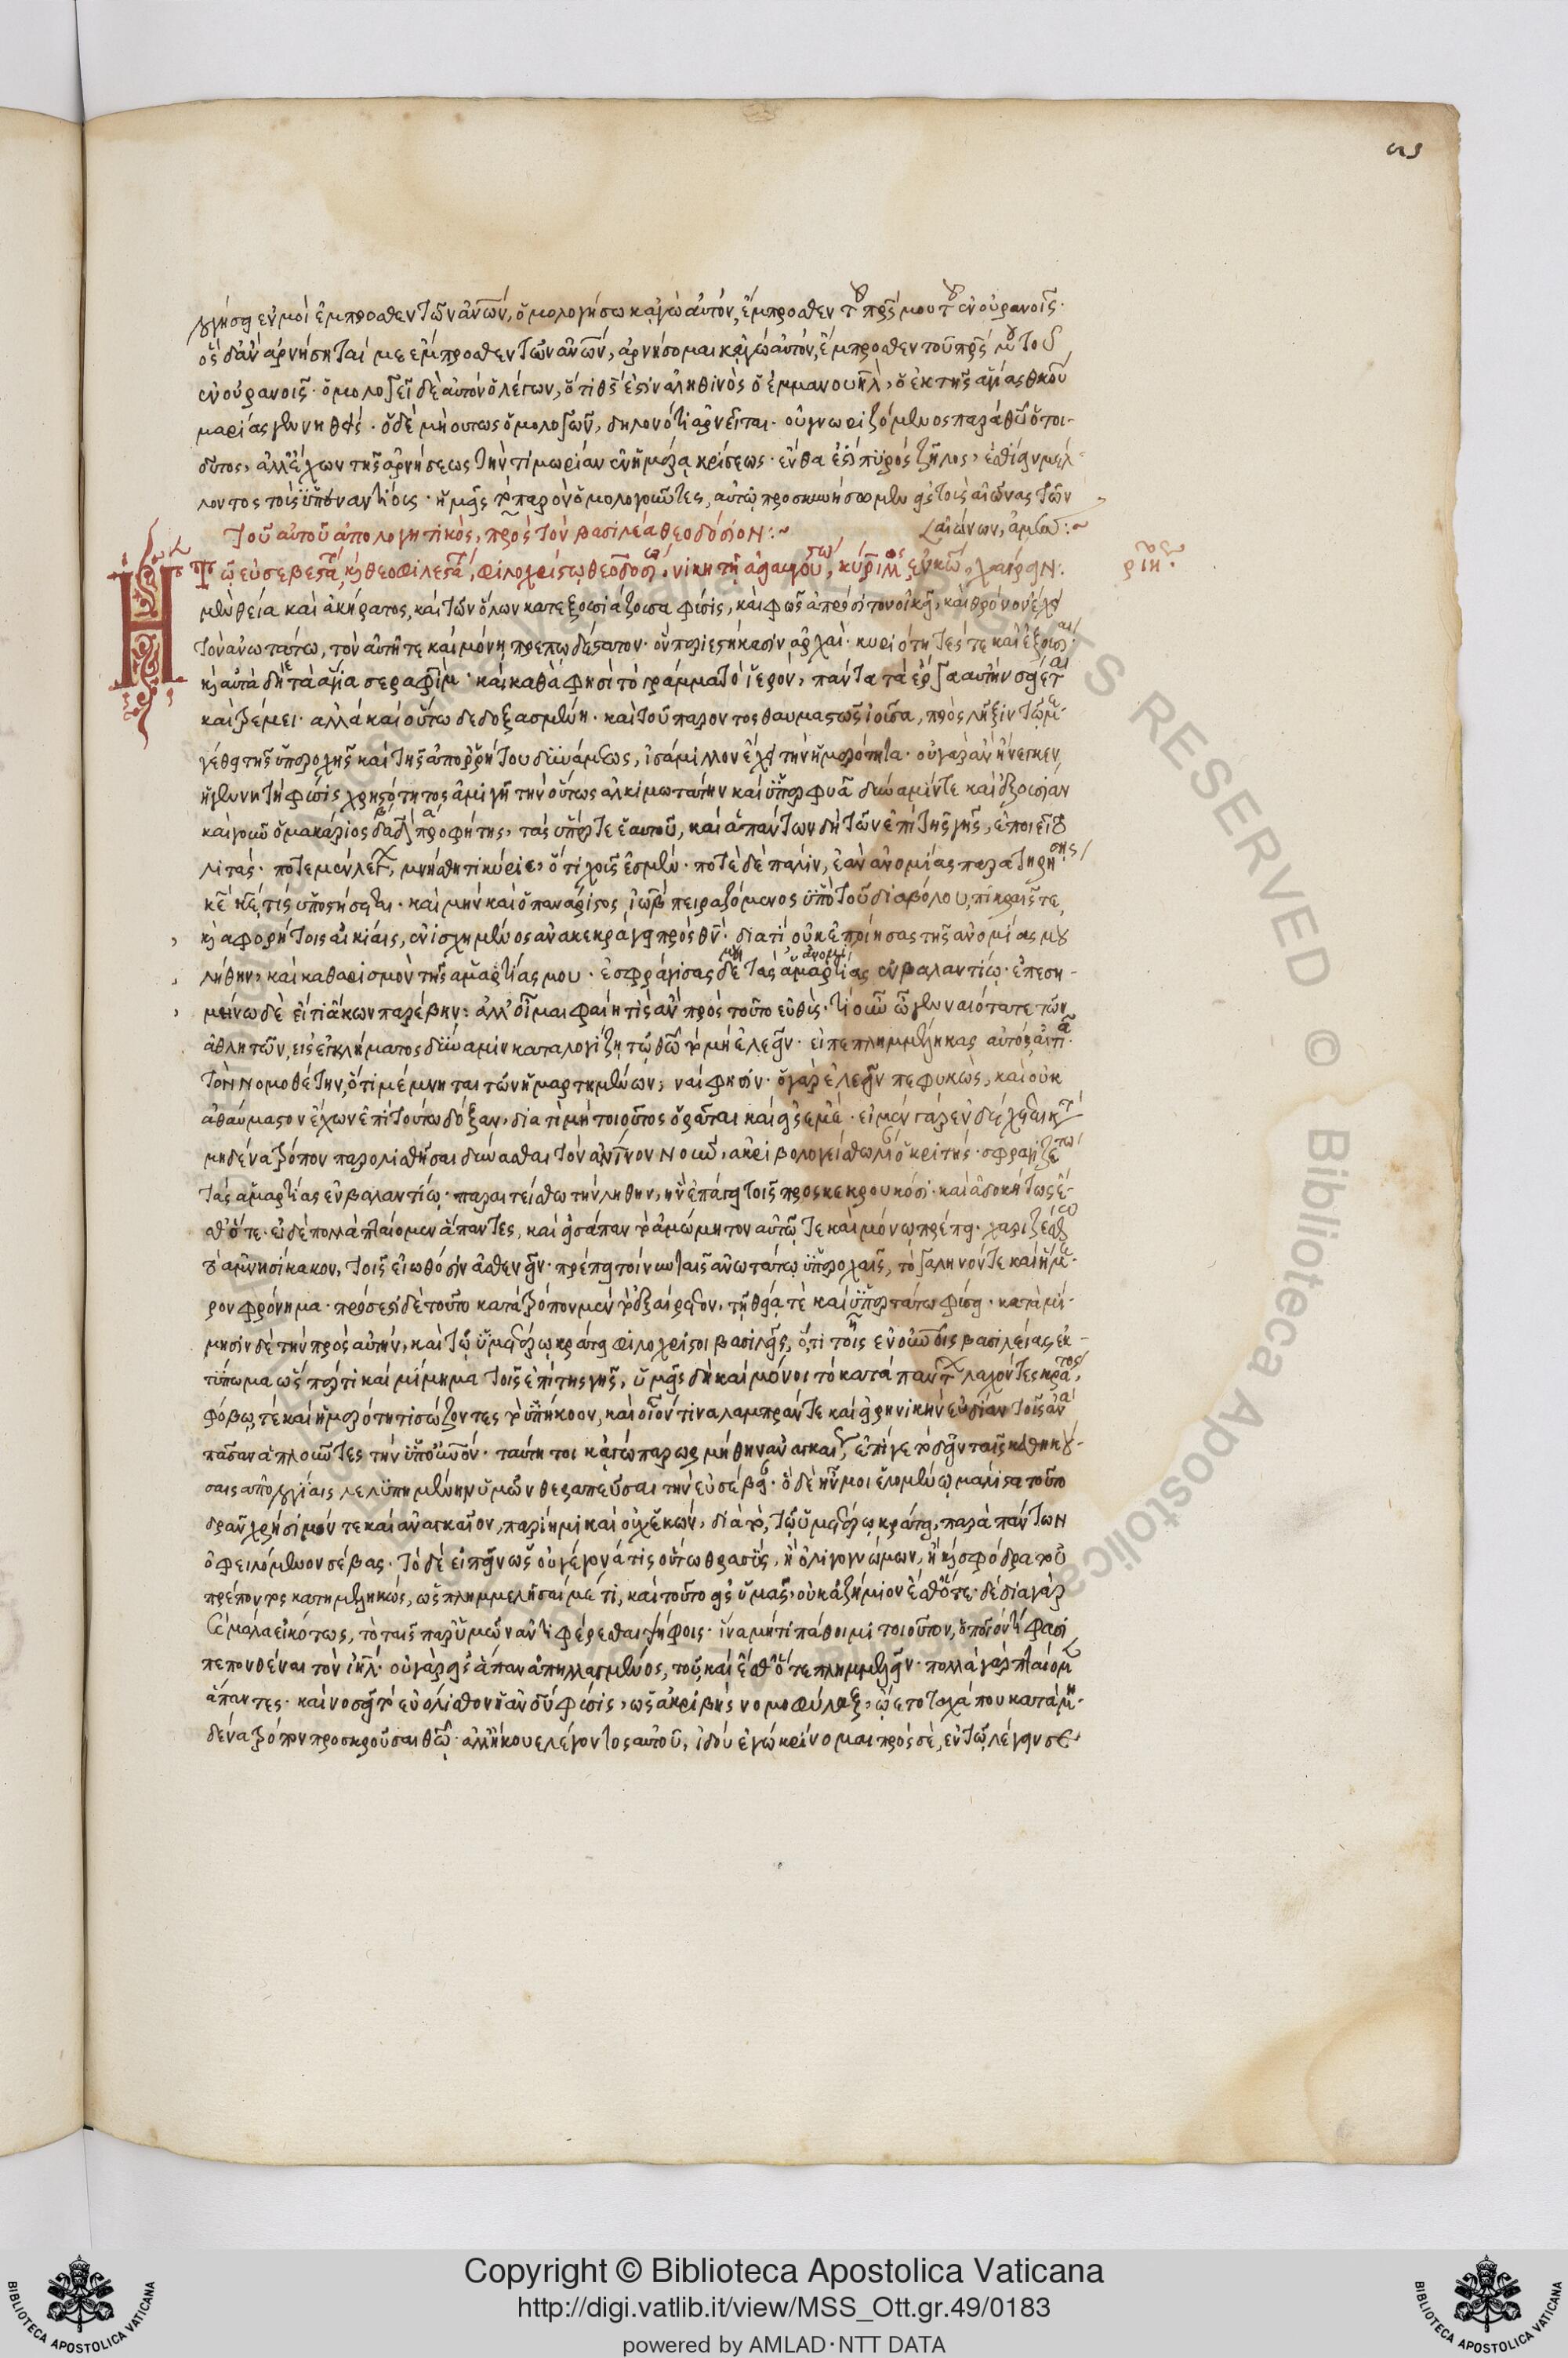 λγήσῃ ἐν μοὶ ἔμπροσθεν τῶν ἀνων, ὁμολογήσω κἀγὼ αὐτόν, ἔμπροσθεν τοῦ πρς μου τοῦ ἐν οὐρανοῖς·
ὃς δ' ἂν ἀρνήσηταί με ἔμπροσθεν τῶν ἀνων, ἀρνήσομαι κἀγὼ αὐτόν, ἔμπροσθεν τοῦ πρς μου τοῦ
ἐν οὐρανοῖς· ὁμολογεῖ δὲ αὐτὸν ὁ λέγων, ὅτι θς ἐστιν ἀληθινὸς ὁ ἐμμανουὴλ, ὁ ἐκ τῆς ἁγίας θκου
μαρίας γεννηθείς· ὁ δὲ μὴ οὕτως ὁμολογῶν, δηλονότι ἀρνεῖται· οὐ γνωριζόμενος παρὰ θυ ὁ τοι-
οῦτος, ἀλλ' ἔχων τῆς ἀρνήσεως τὴν τιμωρίαν ἐν ἡμέρᾳ κρίσεως· ἔνθα ἐστὶ πυρὸς ζῆλος, ἐσθίειν μέλ-
λοντος τοὺς ὑπεναντίους· ἡμεῖς τὸ παρὸν ὁμολογοῦντες, αὐτῷ προσκυνήσομεν εἰς τοὺς αἰῶνας τῶν
αἰώνων, ἀμήν:~
Τοῦ αὐτοῦ ἀπολογητικὸς, πρὸς τὸν βασιλέα θεοδόσιον:~
Τῷ εὐσεβεστά, κὶ θεοφιλεστά, φιλοχρίστῳ θεοδοσί, νικητῇ
χαίρειν:
καὶ ἀκήρατος, καὶ τῶν ὅλων κατεξουσιάζουσα φύσις, καὶ φῶς ἀπρόσιτον οἰκεῖ, καὶ θρόνον ἔχει
τὸν ἀνωτάτω, τὸν αὐτῇ τε καὶ μόνῃ πρεπωδέστατον· ὃν περιεστήκασιν ἀρχαὶ· κυριότητές τε καὶ ἐξουσίαι
κὶ αὐτὰ δὴ τὰ ἅγια σεραφὶμ· καὶ καθά φησι τὸ γράμμα τὸ ἱερόν, πάντα τὰ ἔργα αὐτὴν σέβεται
καὶ τρέμει· ἀλλὰ καὶ οὕτω δεδοξασμένη· καὶ τοῦ παντὸς θαυμαστῶς
γέθει τῆς ὑπεροχῆς καὶ τῆς ἀπορρήτου δυνάμεως, ἰσάμιλλον ἔχει τὴν ἡμερότητα· οὐ γὰρ ἂν ἤνεγκεν,
ἡ γεννητὴ φύσις χρηστότητος ἀμιγῆ τὴν οὕτως ἀλκιμωτάτην καὶ ὑπερφυᾶ δύναμίν τε καὶ ἐξουσίαν
καὶ γοῦν ὁ μακάριος δαδ προφήτης, τὰς ὑπέρ τε ἑαυτοῦ, καὶ ἁπάντων δὴ τῶν ἐπὶ τῆς γῆς, ἐποιεῖτο
λιτάς· ποτὲ μὲν λέγων, μνήσθητι κύριε, ὅτι χοῦς ἐσμέν· ποτὲ δὲ πάλιν, ἐὰν ἀνομίας παρατηρήσῃς
κε κε, τίς ὑποστήσεται· καὶ μὴν καὶ ὁ πανάριστος ἰὼβ πειραζόμενος ὑπὸ τοῦ διαβόλου, πικραῖς τε,
κὶ ἀφορήτοις αἰκίαις, ἐνισχημένος ἀνακεκράγει πρὸς θν· διατί οὐκ ἐποιήσας τῆς ἀνομίας μου
λήθην, καὶ καθαρισμὸν τῆς ἁμαρτίας μου· ἐσφράγισας δέ τὰς ἁμαρτίας ἐν βαλαντίῳ· ἐπεση-
μήνω δὲ εἴ τι ἄκων παρέβην: ἀλλ' οἶμαι φαίη τίς ἂν πρὸς τοῦτο εὐθύς· τί οὖν ὦ γενναιότατε τῶν
ἀθλητῶν, εἰς ἐγκλήματος δύναμιν καταλογίζῃ τῷ θῶ τὸ μὴ ἐλεεῖν· εἰ πεπλημμέληκας αὐτός, αἰτιᾶ
τὸν νομοθέτην, ὅτι μέμνηται τῶν ἡμαρτημένων; ναί φησίν· ὁ γὰρ ἐλεεῖν πεφυκὼς, καὶ οὐκ
ἀθαύμαστον ἔχων ἐπὶ τούτῳ δόξαν, διὰ τί μὴ τοιοῦτος ὁρᾶται καὶ εἰς ἐμέ· εἰ μὲν γὰρ ἐνδέχεται κτ
μηδένα τρόπον παρολισθῆσαι δύνασθαι τὸν ἀνινον νοῦν, ἀκριβολογείσθω μοι ὁ κριτής· σφραγιζέτω
τὰς ἁμαρτίας ἐν βαλαντίῳ· παραιτείσθω τὴν λήθην, ἣν ἐπάγει τοῖς προσκεκρουκόσι· καὶ ἀδοκήτως ἔ-
σθ' ὅτε· εἰ δὲ πολλὰ πταίομεν ἅπαντες, καὶ εἰσάπαν τὸ ἀμώμητον αὐτῷ τε καὶ μόνῳ πρέπει· χαριζέσθω
τὸ ἀμνησίκακον, τοῖς εἰωθόσιν ἀσθενεῖν· πρέπει τοίνυν ταῖς ἀνωτάτω ὑπεροχαῖς, τὸ γαληνόν τε καὶ ἥμε-
ρον φρόνημα· πρόσεστι δὲ τοῦτο κατὰ τρόπον μὲν τὸ ἐξαίρετον, τῇ θείᾳ τε καὶ ὑπερτάτω φύσει· κατὰ μί-
μησιν δὲ τὴν πρὸς αὐτὴν, καὶ τῷ ὑμετέρῳ κράτει φιλόχριστοι βασιλεῖς, ὅτι τῆς ἐν οὐνοῖς βασιλείας ἐκ-
τύπωμα ὥσπερ τι καὶ μίμημα τοῖς ἐπὶ τῆς γῆς, ὑμεῖς δὴ καὶ μόνοι τὸ κατὰ πάντων λαχόντες κράτος,
φόβῳ, τε καὶ ἡμερότητι σώζοντες τὸ ὑπήκοον, καὶ οἷόν τινα λαμπράν τε καὶ εἰρηνικὴν εὐδίαν τοῖς ἀνὰ
πᾶσαν ἁπλοῦντες τὴν ὑπουνόν· ταύτῃ τοι κἀγὼ παρωσ
σαις ἀπολογίαις λελυπημένην ὑμῶν θεραπεῦσαι τὴν εὐσέβειαν· ὃ δὲ ἦν μοι ἑλομένῳ μάλιστα τοῦτο
δρᾶν χρήσιμόν τε καὶ ἀναγκαῖον, παρίημι καὶ οὐχ ἑκών, διὰ τὸ, τῷ ὑμετέρῳ κράτει, παρὰ πάντων
ὀφειλόμενον σέβας· τὸ δὲ εἰπεῖν ὡς οὐ γέγονά τις οὕτω θρασὺς, ἢ ὀλιγογνώμων, ἢ κὶ σφόδρα τοῦ
πρέποντος κατημεληκώς, ὡς πλημμελῆσαί με τί, καὶ τοῦτο εἰς ὑμᾶς, οὐκ ἀζήμιον ἔσθ' ὅτε· δέδια γὰρ
κὶ μάλα εἰκότως, τὸ ταῖς παρ' ὑμῶν ἀντιφέρεσθαι ψήφοις· ἵνα μή τι πάθοιμι τοιοῦτον, ὁποῖόν τί φασι
πεπονθέναι τὸν ἰηλ· οὐ γὰρ εἰς ἅπαν ἀπηλλαγμένος, τοῦ, καὶ ἔσθ' ὅτε πλημμελεῖν· πολλὰ γὰρ πταίομεν
ἅπαντες· καὶ νοσεῖ τὸ εὐόλισθον ἡ ἀνου φύσις, ὡς ἀκριβὴς νομοφύλαξ, ᾤετο τάχα που κατὰ μη-
δένα τρόπον προσκροῦσαι θῶ· ἀλλ' ἤκουε λέγοντος αὐτοῦ, ἰδοὺ ἐγὼ κρίνομαι πρὸς σὲ, ἐν τῷ λέγειν σε
Copyright © Biblioteca Apostolica Vaticana
http://digi.vatlib.it/view/MSS_Ott.gr.49/0183
powered by AMLAD·NTT DATA
BIBLIOTECA APOSTOLICA VATICANA
BIBLIOTECA APOSTOLICA VATICANA